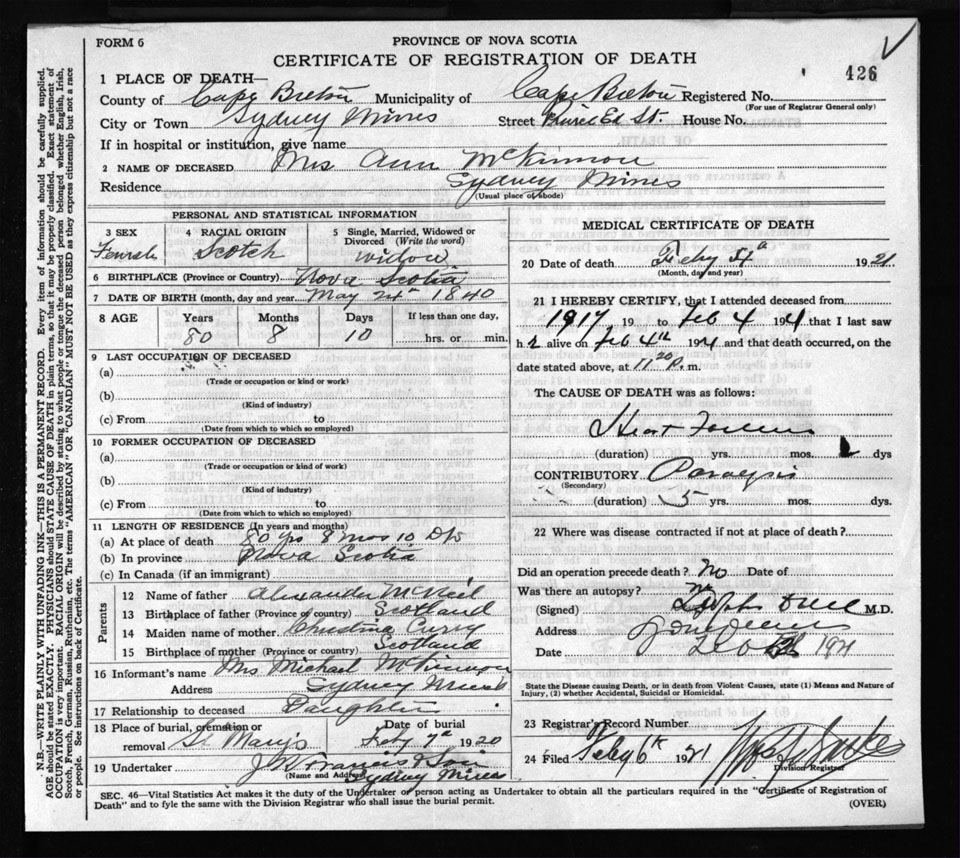 FORM 6
PROVINCE OF NOVA SCOTIA
CERTIFICATE OF REGISTRATION OF DEATH
426
1 PLACE OF DEATH—
County of Cape Breton Municipality of Cape Breton Registered No.
(For use of Registrar General only)
City or Town Sydney Mines Street Ed St. House No.
If in hospital or institution, give name
2 NAME OF DECEASED Mrs Ann McKinnon
Residence Sydney Mines
(Usual place of abode)
PERSONAL AND STATISTICAL INFORMATION
3 SEX Female
4 RACIAL ORIGIN Scotch
5 Single, Married, Widowed or Divorced (Write the word) widow
6 BIRTHPLACE (Province or Country) Nova Scotia
7 DATE OF BIRTH (month, day and year) May 24th 1840
8 AGE Years Months Days If less than one day,
80 8 10 hrs. or min.
9 LAST OCCUPATION OF DECEASED
(a)
(Trade or occupation or kind or work)
(b)
(Kind of industry)
(c) From to
(Date from which to which so employed)
10 FORMER OCCUPATION OF DECEASED
(a)
(Trade or occupation or kind of work)
(b)
(Kind of industry)
(c) From to
(Date from which to which so employed)
11 LENGTH OF RESIDENCE (In years and months)
(a) At place of death 80 yrs 8 mos 10 Dys
(b) In province Nova Scotia
(c) In Canada (if an immigrant)
Parents
12 Name of father Alexander McNeil
13 Birthplace of father (Province or country) Scotland
14 Maiden name of mother Christina Curry
15 Birthplace of mother (Province or country) Scotland
16 Informant's name Mrs Michael McKinnon
Address Sydney Mines
17 Relationship to deceased Daughter
18 Place of burial, cremation or removal St Marys Date of burial Feby 7th 1920
19 Undertaker J W Francis & Son
(Name and Address) Sydney Mines
MEDICAL CERTIFICATE OF DEATH
20 Date of death Feby 4th 1921
(Month, day and year)
21 I HEREBY CERTIFY, that I attended deceased from
1917 19 to Feb 4 1921 that I last saw
h r alive on Feb 4th 1921 and that death occurred, on the
date stated above, at 11 20 P. m.
The CAUSE OF DEATH was as follows:
Heart Failure
(duration) yrs. mos. dys
CONTRIBUTORY Paralysis
(Secondary)
(duration) 5 yrs. mos. dys.
22 Where was disease contracted if not at place of death?
Did an operation precede death? No Date of
Was there an autopsy? No
(Signed) M.D.
Address
Date 1921
State the Disease causing Death, or in death from Violent Causes, state (1) Means and Nature of
Injury, (2) whether Accidental, Suicidal or Homicidal.
23 Registrar's Record Number
24 Filed Feby 6th 1921
Division Registrar
SEC. 46—Vital Statistics Act makes it the duty of the Undertaker or person acting as Undertaker to obtain all the particulars required in the "Certificate of Registration of
Death" and to fyle the same with the Division Registrar who shall issue the burial permit.
(OVER)
N.B.—WRITE PLAINLY WITH UNFADING INK—THIS IS A PERMANENT RECORD. Every item of information should be carefully supplied.
AGE should be stated EXACTLY. PHYSICIANS should STATE CAUSE OF DEATH in plain terms, so that it may be properly classified. Exact statement of
OCCUPATION is very important. RACIAL ORIGIN will be described by stating to what people or tongue the deceased person belonged, whether English, Irish,
Scotch, French, German, Russian, Ruthenian, etc. The terms "AMERICAN" OR "CANADIAN" MUST NOT BE USED as they express citizenship but not a race
or people. See instructions on back of Certificate.